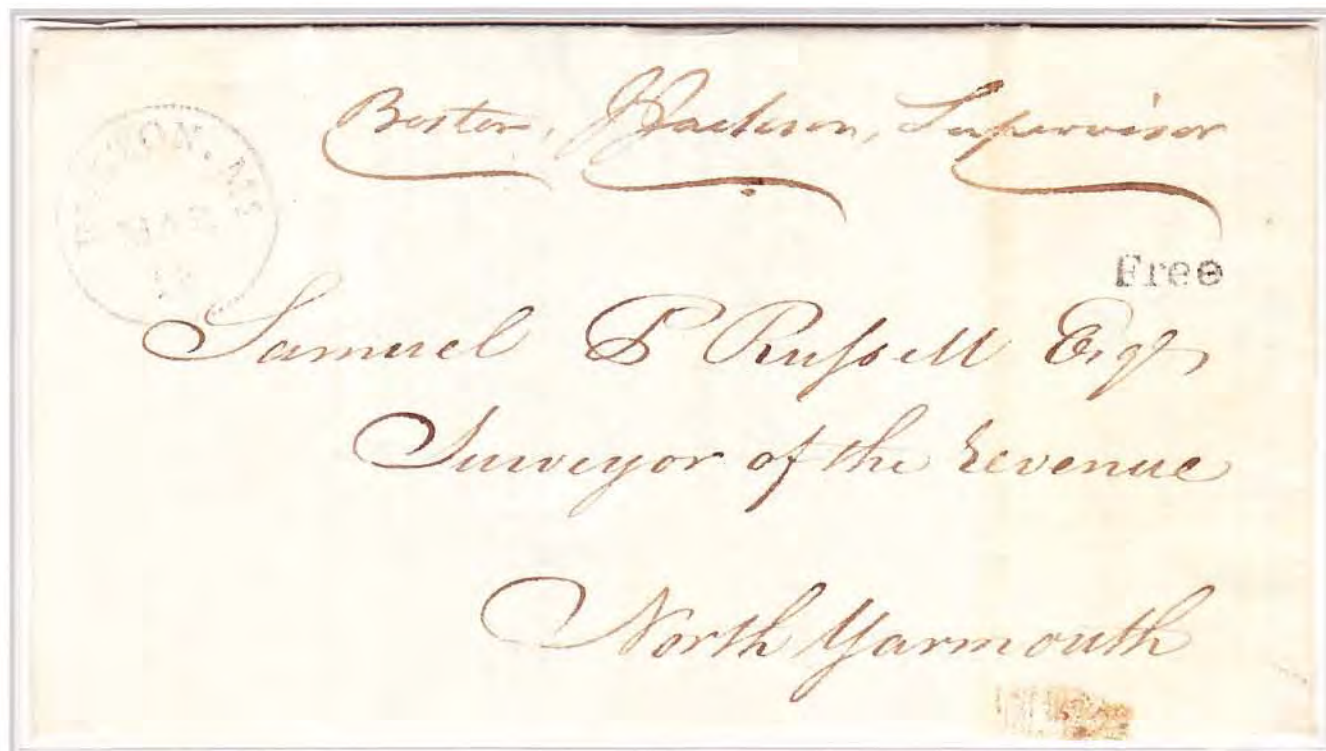 Boston, J Jackson, Supervisor
Free
Samuel P Russell Esqr
Surveyor of the Revenue
North Yarmouth